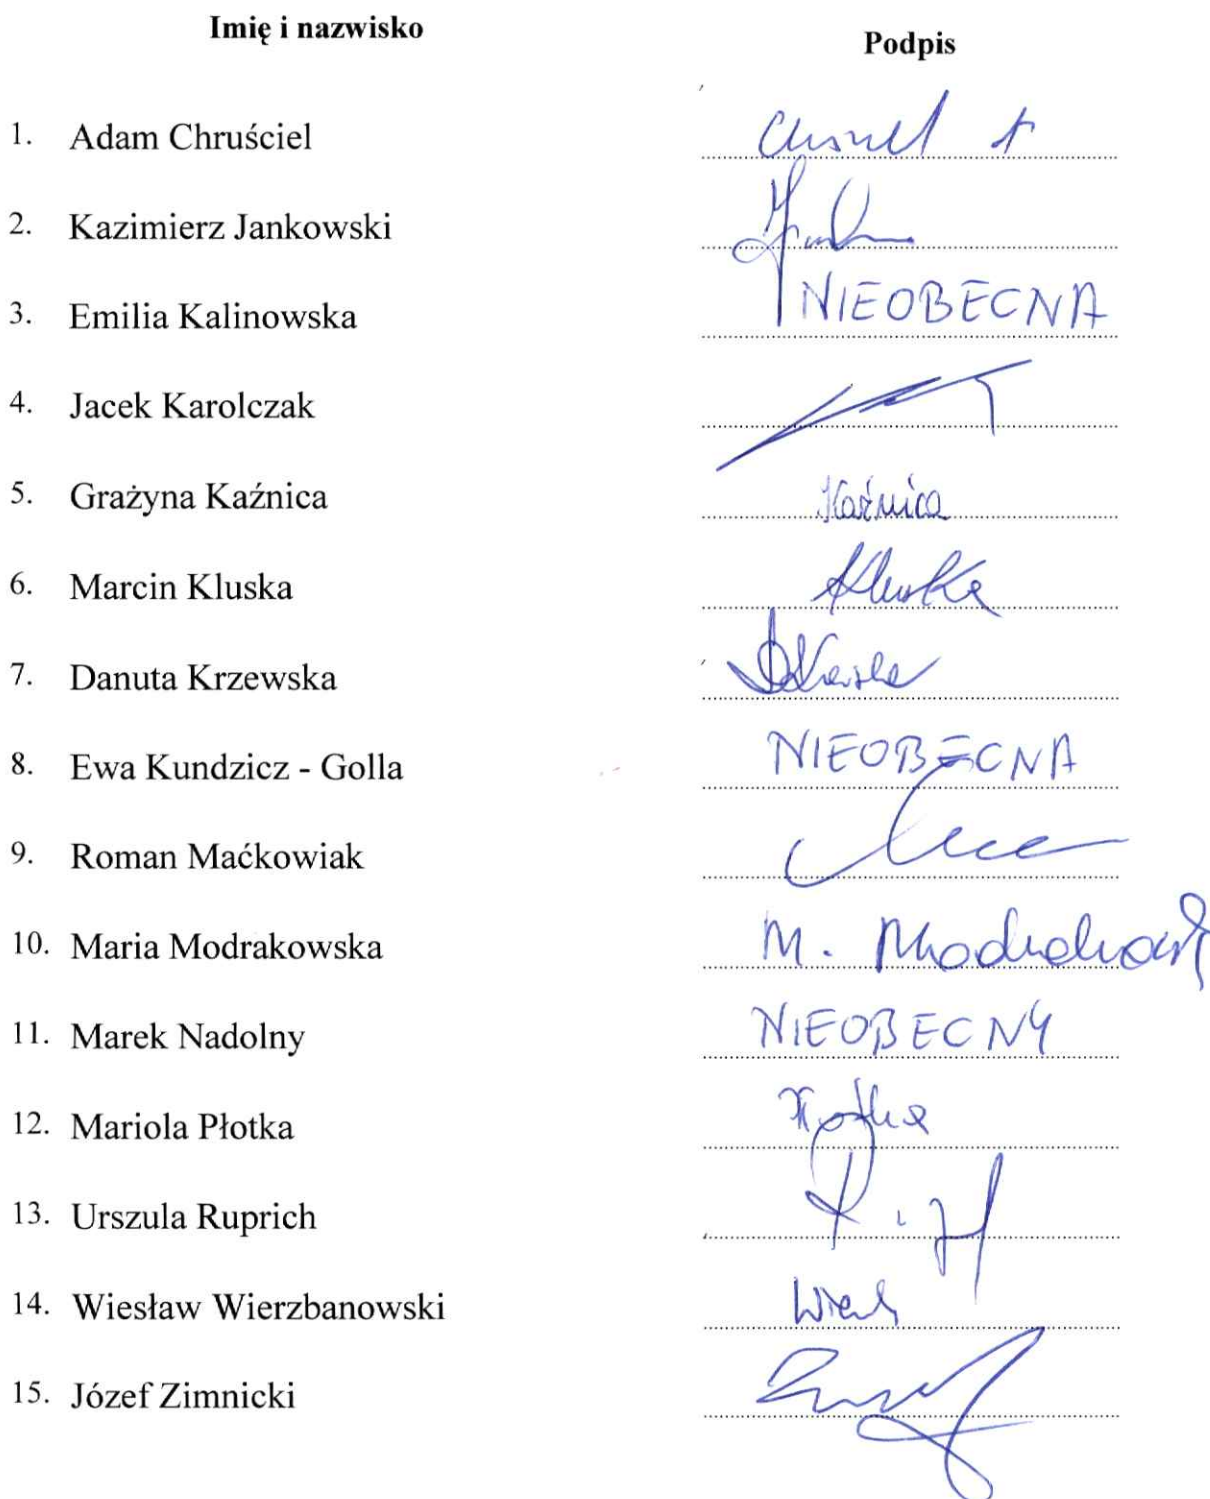 Imię i nazwisko Podpis
1. Adam Chruściel
2. Kazimierz Jankowski
3. Emilia Kalinowska NIEOBECNA
4. Jacek Karolczak
5. Grażyna Kaźnica Kaźnica
6. Marcin Kluska Kluska
7. Danuta Krzewska
8. Ewa Kundzicz - Golla NIEOBECNA
9. Roman Maćkowiak
10. Maria Modrakowska M.
11. Marek Nadolny NIEOBECNY
12. Mariola Płotka
13. Urszula Ruprich
14. Wiesław Wierzbanowski
15. Józef Zimnicki